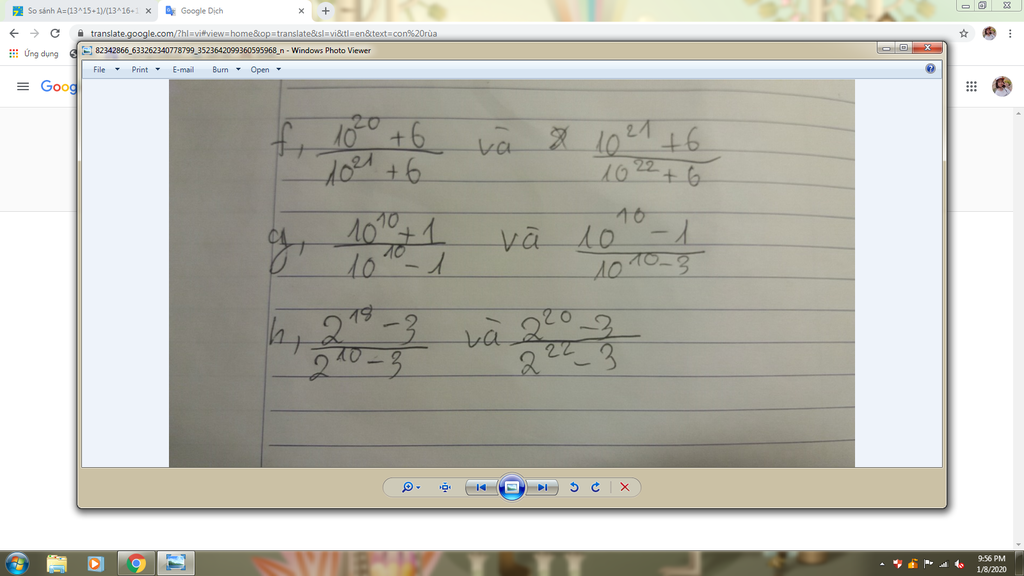 So sánh A=(13^15+1)/(13^16+
Google Dịch
translate.google.com/?hl=vi#view=home&op=translate&sl=vi&tl=en&text=con%20rùa
Ứng dụng
82342866_633262340778799_3523642099360595968_n - Windows Photo Viewer
File Print E-mail Burn Open
Goog
f, (10^20 + 6)/(10^21 + 6) và (10^21 + 6)/(10^22 + 6)
g, (10^10 + 1)/(10^10 - 1) và (10^10 - 1)/(10^10 - 3)
h, (2^18 - 3)/(2^10 - 3) và (2^20 - 3)/(2^22 - 3)
9:56 PM
1/8/2020